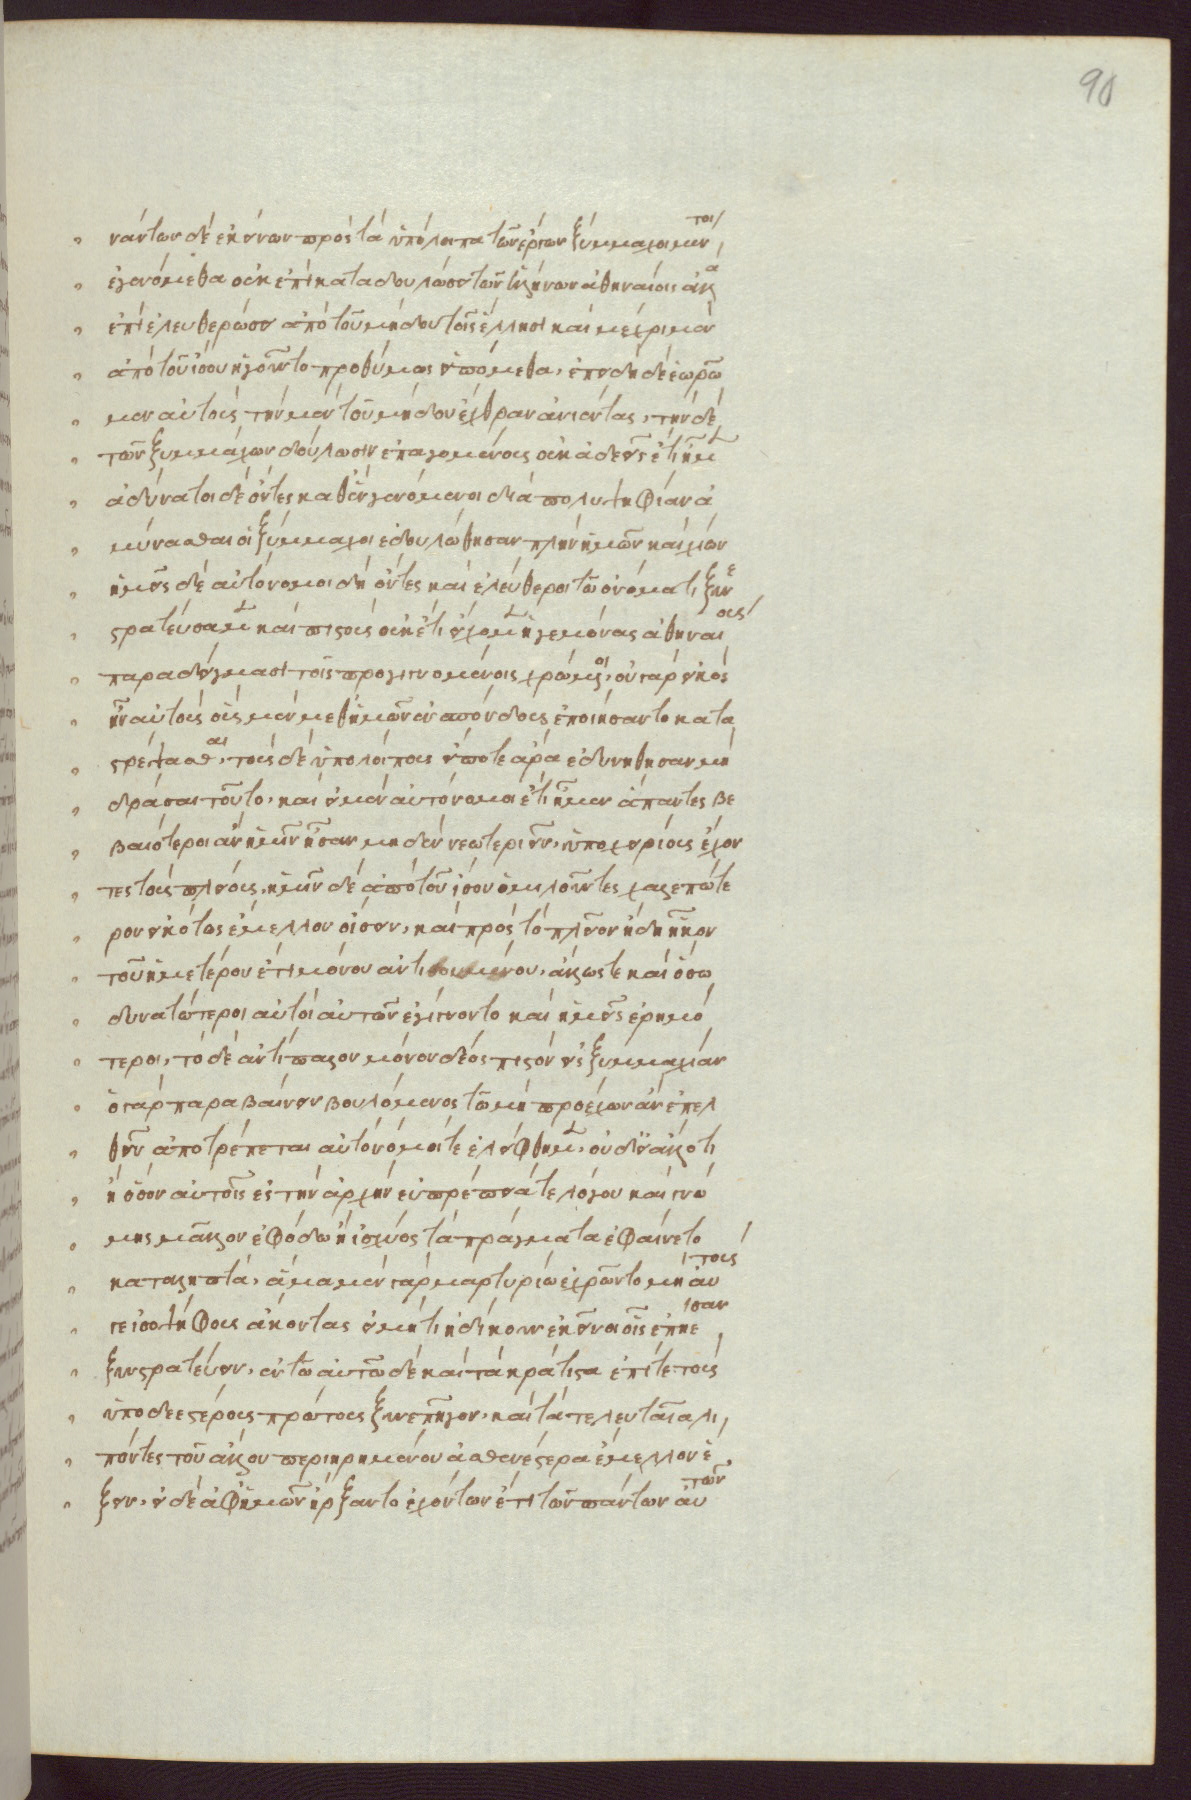 90
νάντων δὲ ἐκείνων πρὸς τὰ ὑπόλοιπα τῶν ἔργων ξύμμαχοι μέντοι
ἐγενόμεθα οὐκ ἐπὶ καταδουλώσει τῶν ἑλλήνων ἀθηναίοις ἀλλὰ
ἐπὶ ἐλευθερώσει ἀπὸ τοῦ μήδου τοῖς ἕλλησι καὶ μέχρι μὲν
ἀπὸ τοῦ ἴσου ἡγοῦντο προθύμως εἱπόμεθα, ἐπειδὴ δὲ ἑωρῶ
μεν αὐτοὺς τὴν μὲν τοῦ μήδου ἔχθραν ἀνιέντας, τὴν δὲ
τῶν ξυμμάχων δούλωσιν ἐπαγομένους οὐκ ἀδεεῖς ἔτι ἦμεν
ἀδύνατοι δὲ ὄντες καθ' ἓν γενόμενοι διὰ πολυψηφίαν ἀ
μύνασθαι οἱ ξύμμαχοι ἐδουλώθησαν πλὴν ἡμῶν καὶ χίων
ἡμεῖς δὲ αὐτόνομοι δὴ ὄντες καὶ ἐλεύθεροι τῶ ὀνόματι ξυνε
στρατεύσαμεν καὶ πιστοὺς οὐκέτι εἴχομεν ἡγεμόνας ἀθηναίους
παραδείγμασι τοῖς προγιγνομένοις χρώμενοι, οὐ γὰρ εἰκὸς
ἦν αὐτοὺς οὓς μὲν μεθ' ἡμῶν ἐνσπόνδους ἐποιήσαντο κατα
στρέψασθαι, τοὺς δὲ ὑπολοίπους εἴποτε ἄρα ἐδυνήθησαν μὴ
δρᾶσαι τοῦτο, καὶ εἰ μὲν αὐτόνομοι ἔτι ἦμεν ἅπαντες βε
βαιότεροι ἂν ἡμῖν ἦσαν μηδὲν νεωτεριεῖν, ὑποχειρίους ἔχον
τες τοὺς πλείους, ἡμῖν δὲ ἀπὸ τοῦ ἴσου ὁμιλοῦντες χαλεπώτε
ρον εἰκότως ἔμελλον οἴσειν, καὶ πρὸς τὸ πλεῖον ἤδη εἶκον
τοῦ ἡμετέρου ἔτι μόνου ἀντισουμένου, ἄλλως τε καὶ ὅσω
δυνατώτεροι αὐτοὶ αὑτῶν ἐγίγνοντο καὶ ἡμεῖς ἐρημό
τεροι, τὸ δὲ ἀντίπαλον μόνον δέος πιστὸν εἰς ξυμμαχίαν
ὁ γὰρ παραβαίνειν βουλόμενος τῶ μὴ προέχων ἂν ἐπελ
θεῖν ἀποτρέπεται αὐτόνομοί τε ἐλείφθημεν, οὐ δι' ἄλλο τι
ἢ ὅσον αὐτοῖς ἐς τὴν ἀρχὴν εὐπρεπείᾳ τε λόγου καὶ γνώ
μης μᾶλλον ἐφόδω ἢ ἰσχύος τὰ πράγματα ἐφαίνετο
καταληπτά, ἅμα μὲν γὰρ μαρτυρίω ἐχρῶντο μὴ ἂν τούς
γε ἰσοψήφους ἄκοντας εἰ μή τι ἠδίκουν ἐκεῖνοι οἷς ἐπήισαν
ξυστρατεύειν, ἐν τῶ αὐτῶ δὲ καὶ τὰ κράτιστα ἐπί τε τοὺς
ὑποδεεστέρους πρώτους ξυνεπῆγον, καὶ τὰ τελευταῖα λι
πόντες τοῦ ἄλλου περιηρημένου ἀσθενέστερα ἔμελλον ἕ
ξειν, εἰ δὲ ἀφ' ἡμῶν ἤρξαντο ἐχόντων ἔτι τῶν πάντων αὐτῶν